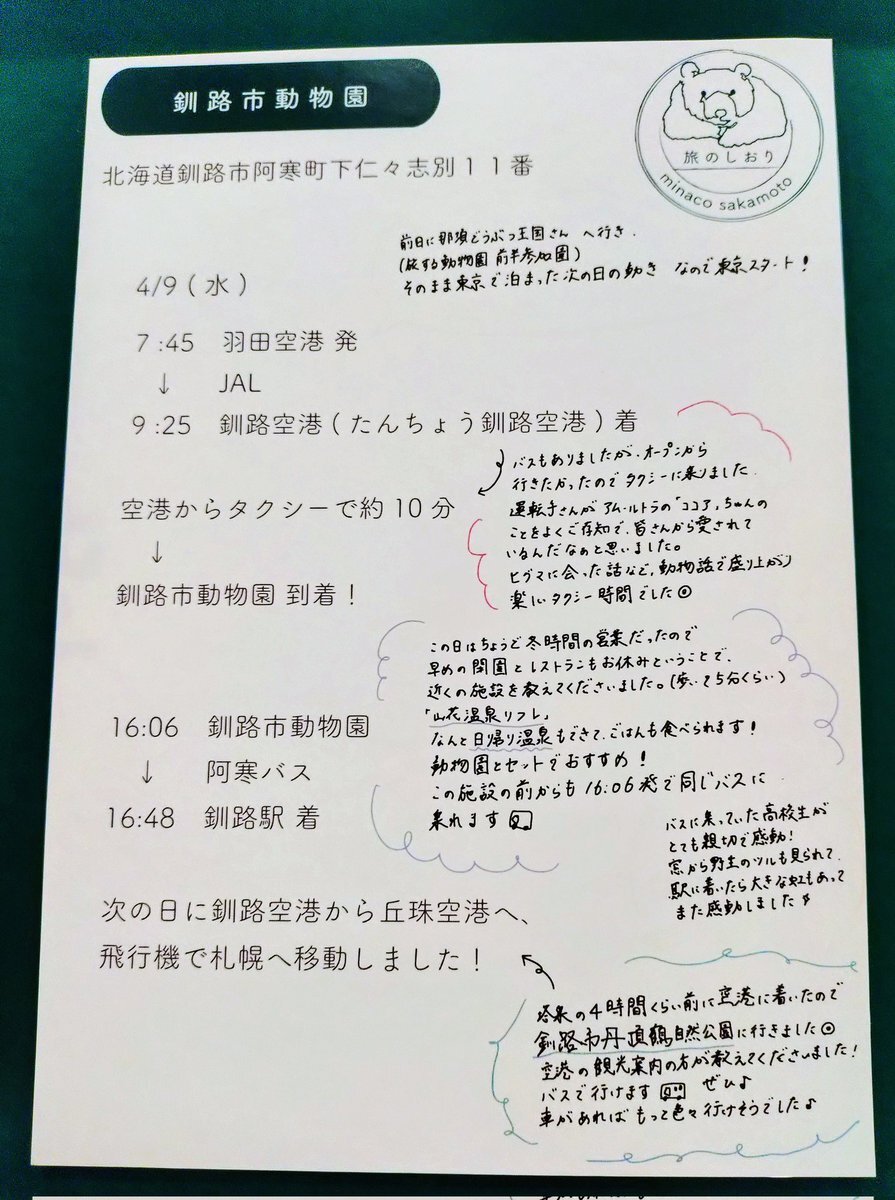 釧路市動物園
旅のしおり
minaco sakamoto
北海道釧路市阿寒町下仁々志別11番
前日に那須どうぶつ王国さん へ行き、
(旅する動物園 前半参加園)
そのまま東京で泊まった次の日の動き なので東京スタート!
4/9(水)
7:45 羽田空港 発
↓ JAL
9:25 釧路空港(たんちょう釧路空港)着
バスもありましたが、オープンから
行きたかったのでタクシーに乗りました。
空港からタクシーで約10分
運転手さんがアムールトラの「ココア」ちゃんの
ことをよくご存知で、皆さんから愛されて
いるんだなぁと思いました。
ヒグマに会った話など、動物話で盛り上がり
楽しいタクシー時間でした
↓
釧路市動物園 到着!
この日はちょうど冬時間の営業だったので
早めの閉園とレストランもお休みということで、
近くの施設を教えてくださいました。(歩いて5分くらい)
「山花温泉リフレ」
なんと日帰り温泉もできて、ごはんも食べられます!
動物園とセットでおすすめ!
この施設の前からも16:06発で同じバスに
乗れます
16:06 釧路市動物園
↓ 阿寒バス
16:48 釧路駅 着
バスに乗っていた高校生が
とても親切で感動!
窓から野生のツルも見られて、
駅に着いたら大きな虹もあって
また感動しました
次の日に釧路空港から丘珠空港へ、
飛行機で札幌へ移動しました!
搭乗の4時間くらい前に空港に着いたので
釧路市丹頂鶴自然公園に行きました
空港の観光案内の方が教えてくださいました!
バスで行けます ぜひ♪
車があればもって色々行けそうでした♪